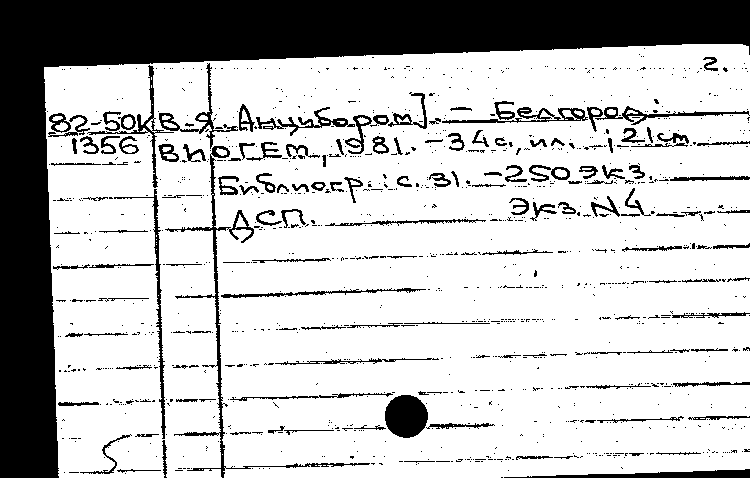 2.
82-50К В.Я. Анцибором]. – Белгород:
1356 ВИОГЕМ, 1981. – 34с., ил. ; 21см.
Библиогр.: с. 31. – 250 экз.
ДСП. Экз. N4.